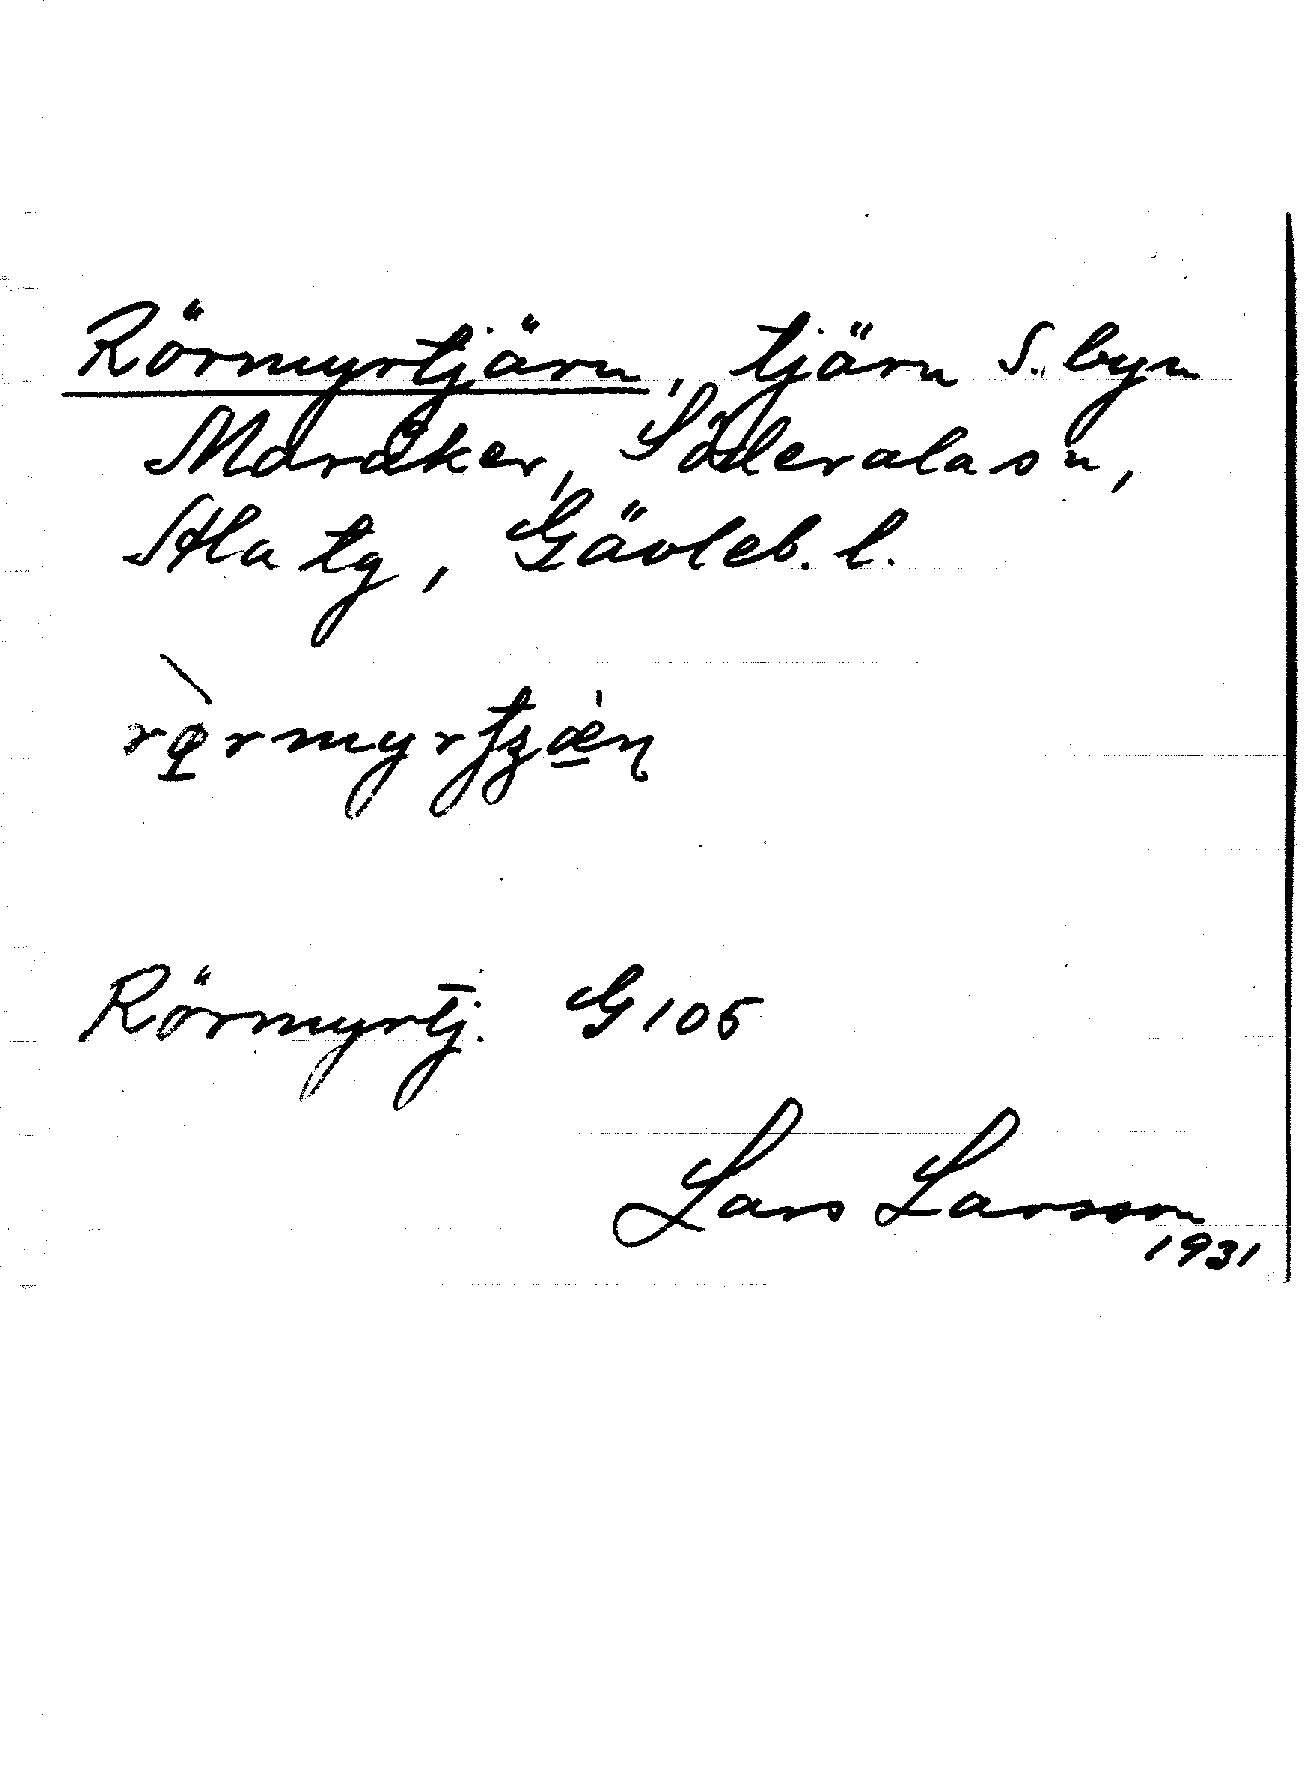 Rörmyrtjärn, tjärn S. byn
Maråker, Söderala sn,
Ala tg, Gävleb. l.
Rörmyrtj. G 105
Lars Larsson
1931